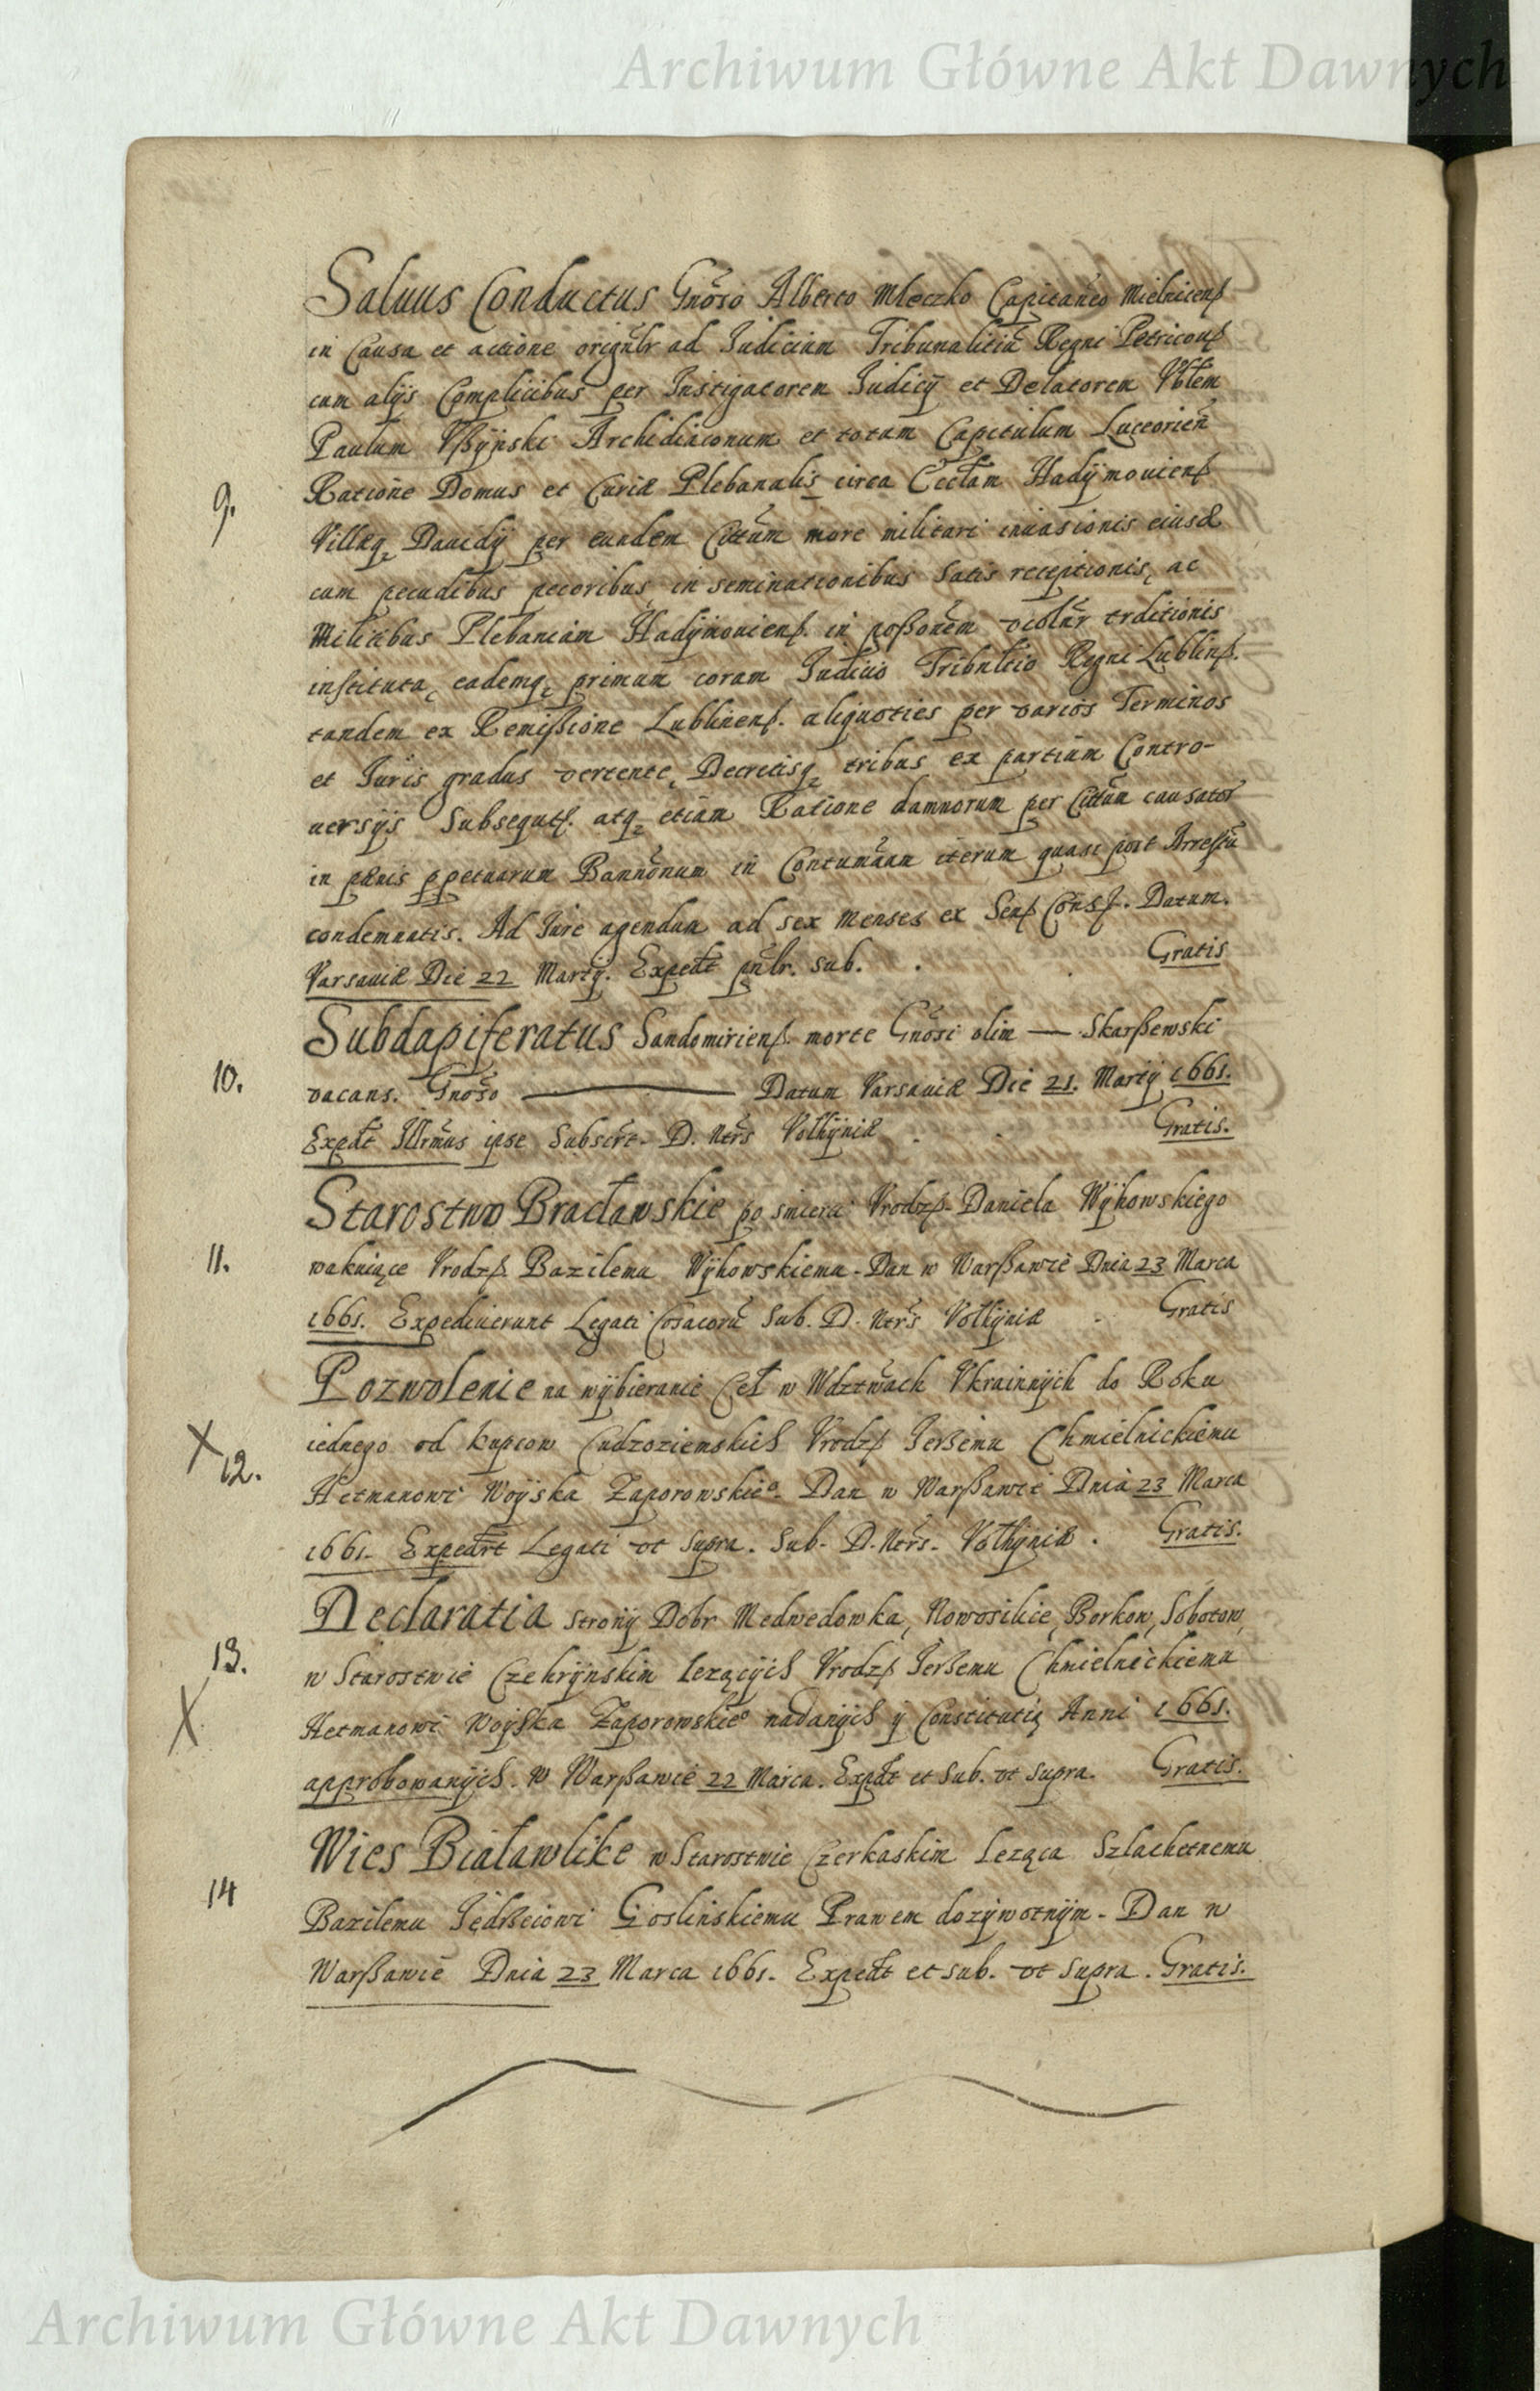 Archiwum Główne Akt Dawnych
Saluus Conductus Gnoso Alberto Mleczko Capitaneo Mielnicenß
in Causa et actione originlr ad Iudicium Tribunalitiu Regni Petricouß
cum alijs Complicibus per Instigatorem Iudicij et Delatorem Vblem
Paulum Vßÿnski Archidiaconum et totum Capitulum Luceorien
9. Ratione Domus et Curiæ Plebanalis circa Eccłam Hadÿmouienß
Villæq; Dauidÿ per eundem Cittum more militari inuasionis eiusd
cum pecudibus pecoribus, in seminationibus Satis receptionis, ac
Militibus Plebaniam Hadÿmouienß. in poßonem violnr trditionis
instituta, eademq; primum coram Iudicio Tribnltio Regni Lublinß.
tandem ex Remißione Lublinenß. aliquoties per varios Terminos
et Iuris gradus vertente, Decretisq; tribus ex partium Contro-
uersijs Subsequtß. atq; etiam Ratione damnorum per Cittum causator
in pænis ppetuarum Bannonum in Contumaam iterum quasi post Arrestu
condemnatis. Ad Iure agendum ad sex Menses ex Senß Consß. Datum.
Varsauiæ Die 22 Martij. Expedt pnlr. Sub. . . Gratis
Subdapiferatus Sandomirienß. morte Gnosi olim — Skarßewski
10. vacans. Gnoso — Datum Varsauiæ Die 21. Martij 1661.
Expdt Illrmus ipse Subscrt. D. Ntrs Volhÿniæ . . Gratis.
Starostwo Bracławskie po smierci Vrodzß. Daniela Wÿhowskiego
11. wakuiące Vrodzß Bazilemu Wÿhowskiemu. Dan w Warßawie Dnia 23 Marca
1661. Expediuerunt Legati Cosacoru Sub. D. Ntrs Volhÿniæ . Gratis
Pozwolenie na wÿbieranie Ceł w Wdztwach Vkrainnÿch do Roku
X 12. iednego od kupcow Cudzoziemskich Vrodzß Ierßemu Chmielnickiemu
Hetmanowi Woÿska Zaporowskieo. Dan w Warßawie Dnia 23 Marca
1661. Expedrt Legati vt supra. Sub. D. Ntrs. Volhÿniæ . Gratis.
Declaratia stronÿ Dobr Medwedowka, Nowosilice, Borkow, Sobotow,
13. w Starostwie Czehrÿnskim lezącÿch Vrodzß Ierßemu Chmielnickiemu
X Hetmanowi Woÿska Zaporowskieo nadanÿch ÿ Constitutią Anni 1661.
approbowanÿch. W Warßawie 22 Marca. Expdt et Sub. vt supra. Gratis.
Wies Białawlike w Starostwie Czerkaskim Leząca Szlachetnemu
14 Bazilemu Iędrßeiowi Goslinskiemu Prawem dozÿwotnÿm. Dan w
Warßawie Dnia 23 Marca 1661. Expedt et sub. vt supra. Gratis.
Archiwum Główne Akt Dawnych